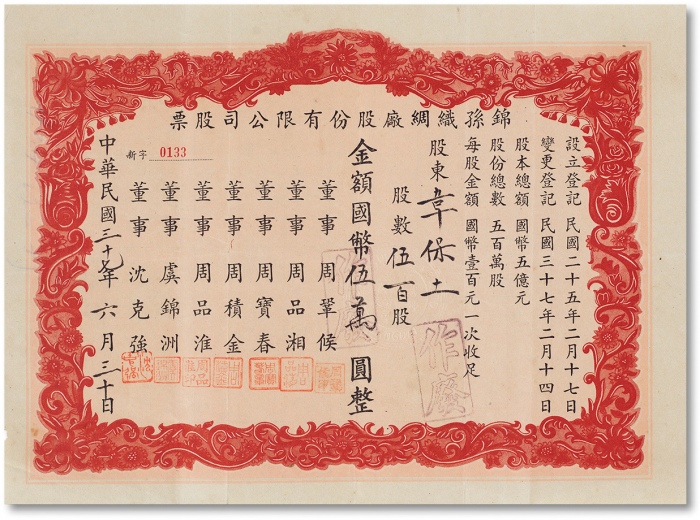 錦孫織綢廠股份有限公司股票
設立登記 民國二十五年二月十七日
變更登記 民國三十七年二月十四日
股本總額 國幣五億元
股份總數 五百萬股
每股金額 國幣壹百元一次收足
股東 韋保土
股數 伍百股
金額國幣伍萬圓整
董事 周鞏候
董事 周品湘
董事 周寶春
董事 周積金
董事 周品淮
董事 虞錦洲
董事 沈克強
新字 0133
中華民國三十七年六月三十日
作廢
作廢